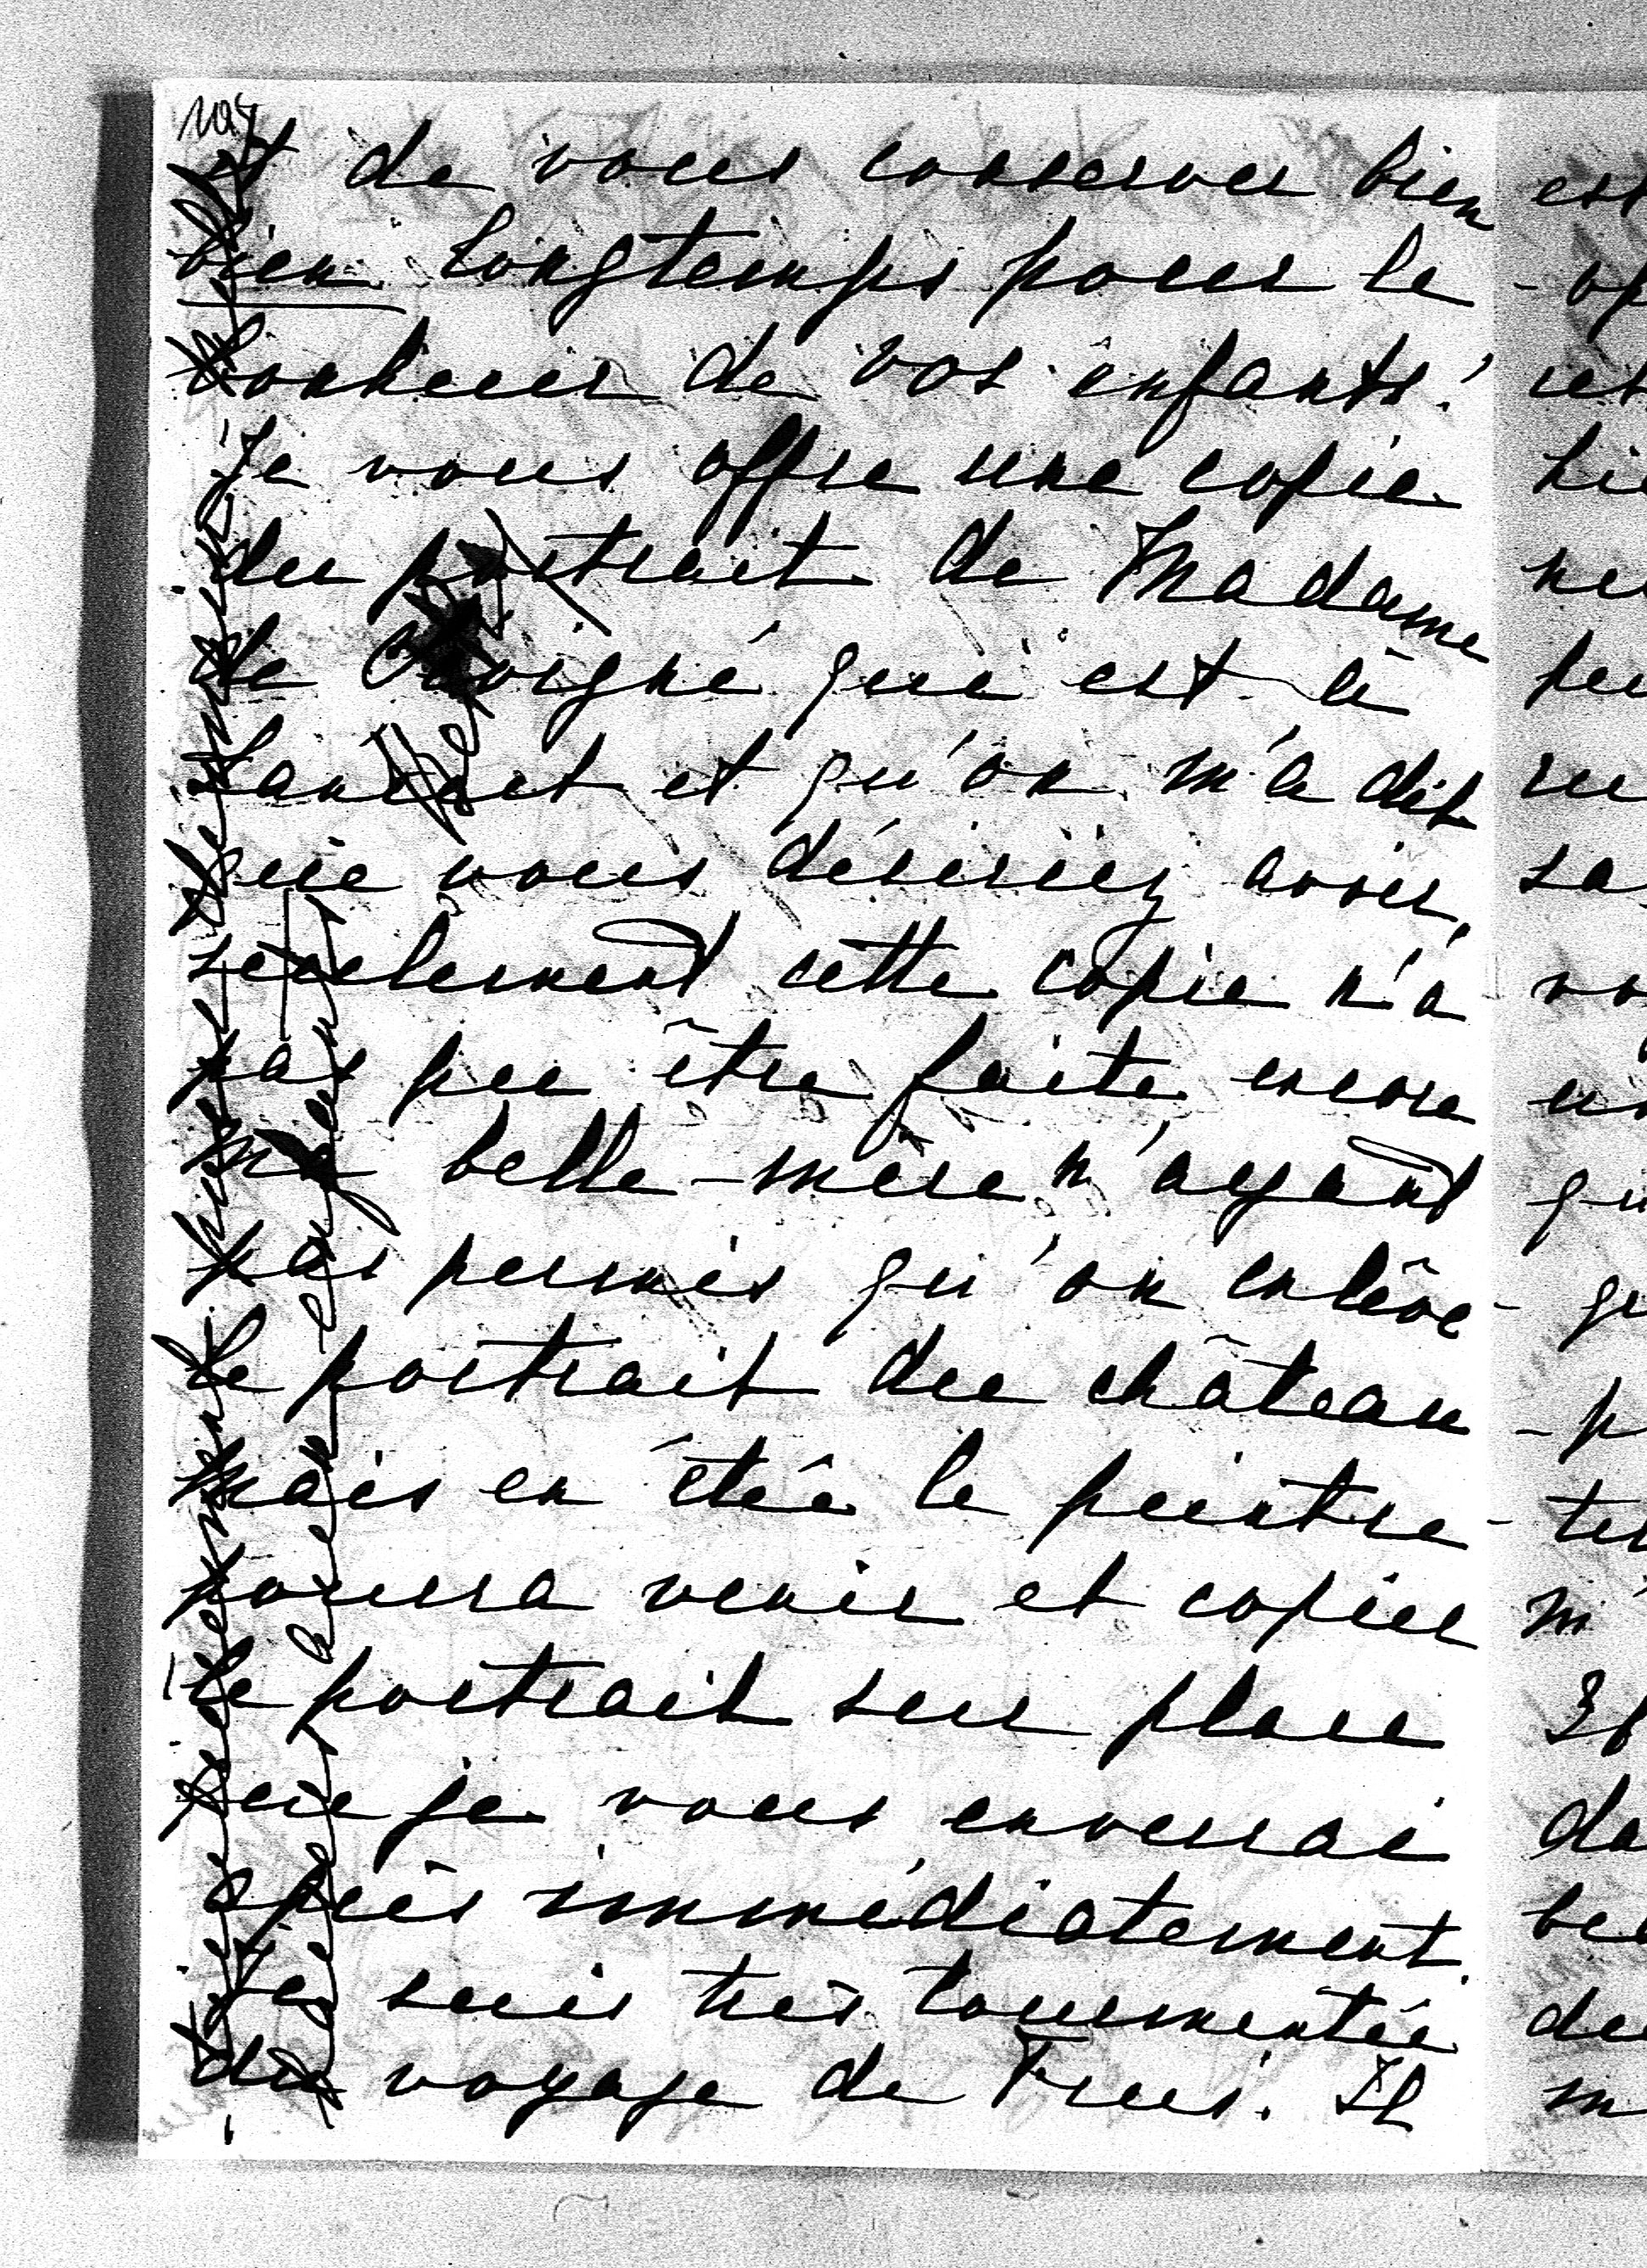 et de vous conserver bien
bien longtemps pour le
bonheur de vos enfants!
Je vous offre une copie
du portrait de Madame
de qui est à
Lançut et qu'on m'a dit
que vous désiriez avoir,
seulement cette copie n'a
pas pu être faite encore
ma belle-mère n'ayant
pas permis qu'on enlève
le portrait du château
mais en étée le peintre
pourra venir et copier
le portrait sur place
que je vous enverrai
après immédiatement.
Je suis très tourmentée
du voyage de Fui. Il